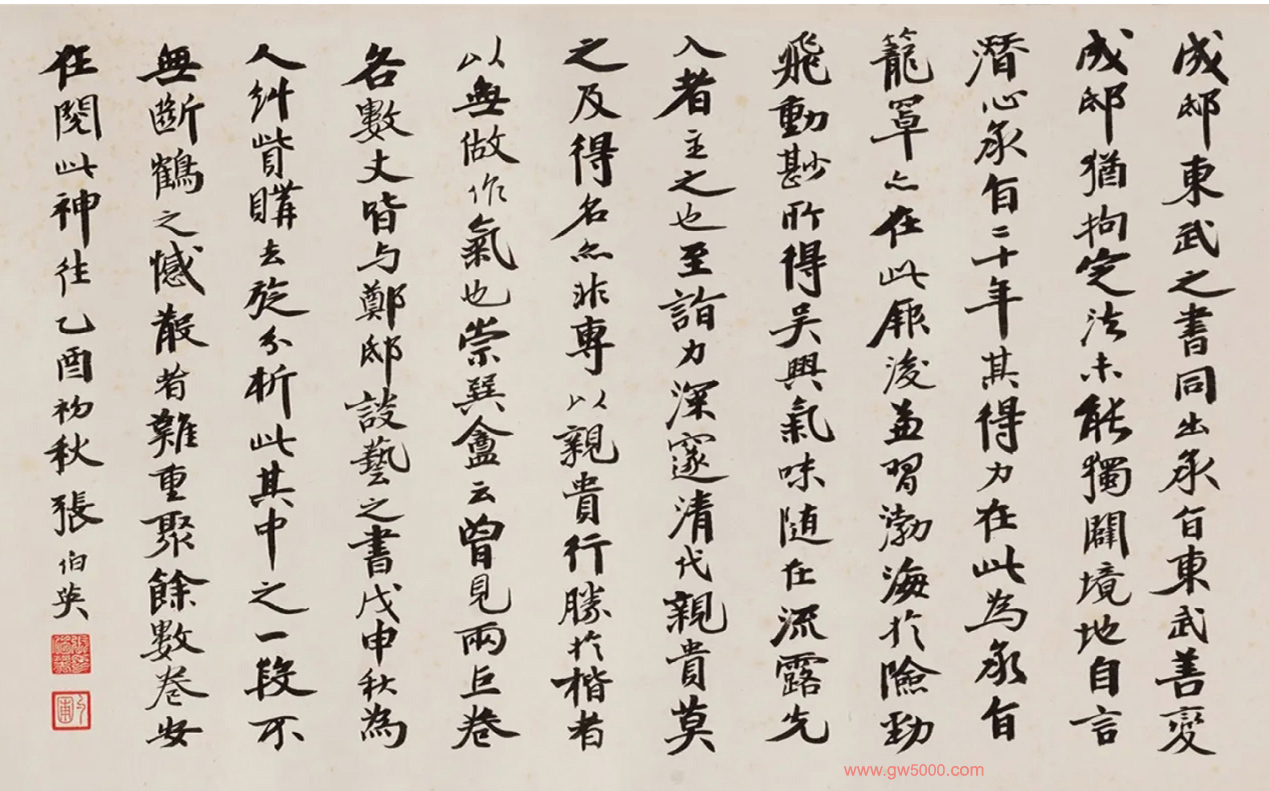 成邸東武之書同出永興東武善變
成邸猶拘定法未能獨闢境地自言
潛心永興二十年其得力在此為永興
籠罩亦在此服後兼習渤海於險勁
飛動尠所得吳興氣味隨在流露先
入者主之也至詣力深邃清代親貴莫
之及得名亦非專以親貴行勝於楷者
以無做作氣也崇巽盦云曾見兩巨卷
各數丈皆与鄭邸談藝之書戊申秋為
人糾貲購去旋分析此其中之一段不
無斷鶴之憾散者難重聚餘數卷安
在閱此神往乙酉初秋張伯英
www.gw5000.com